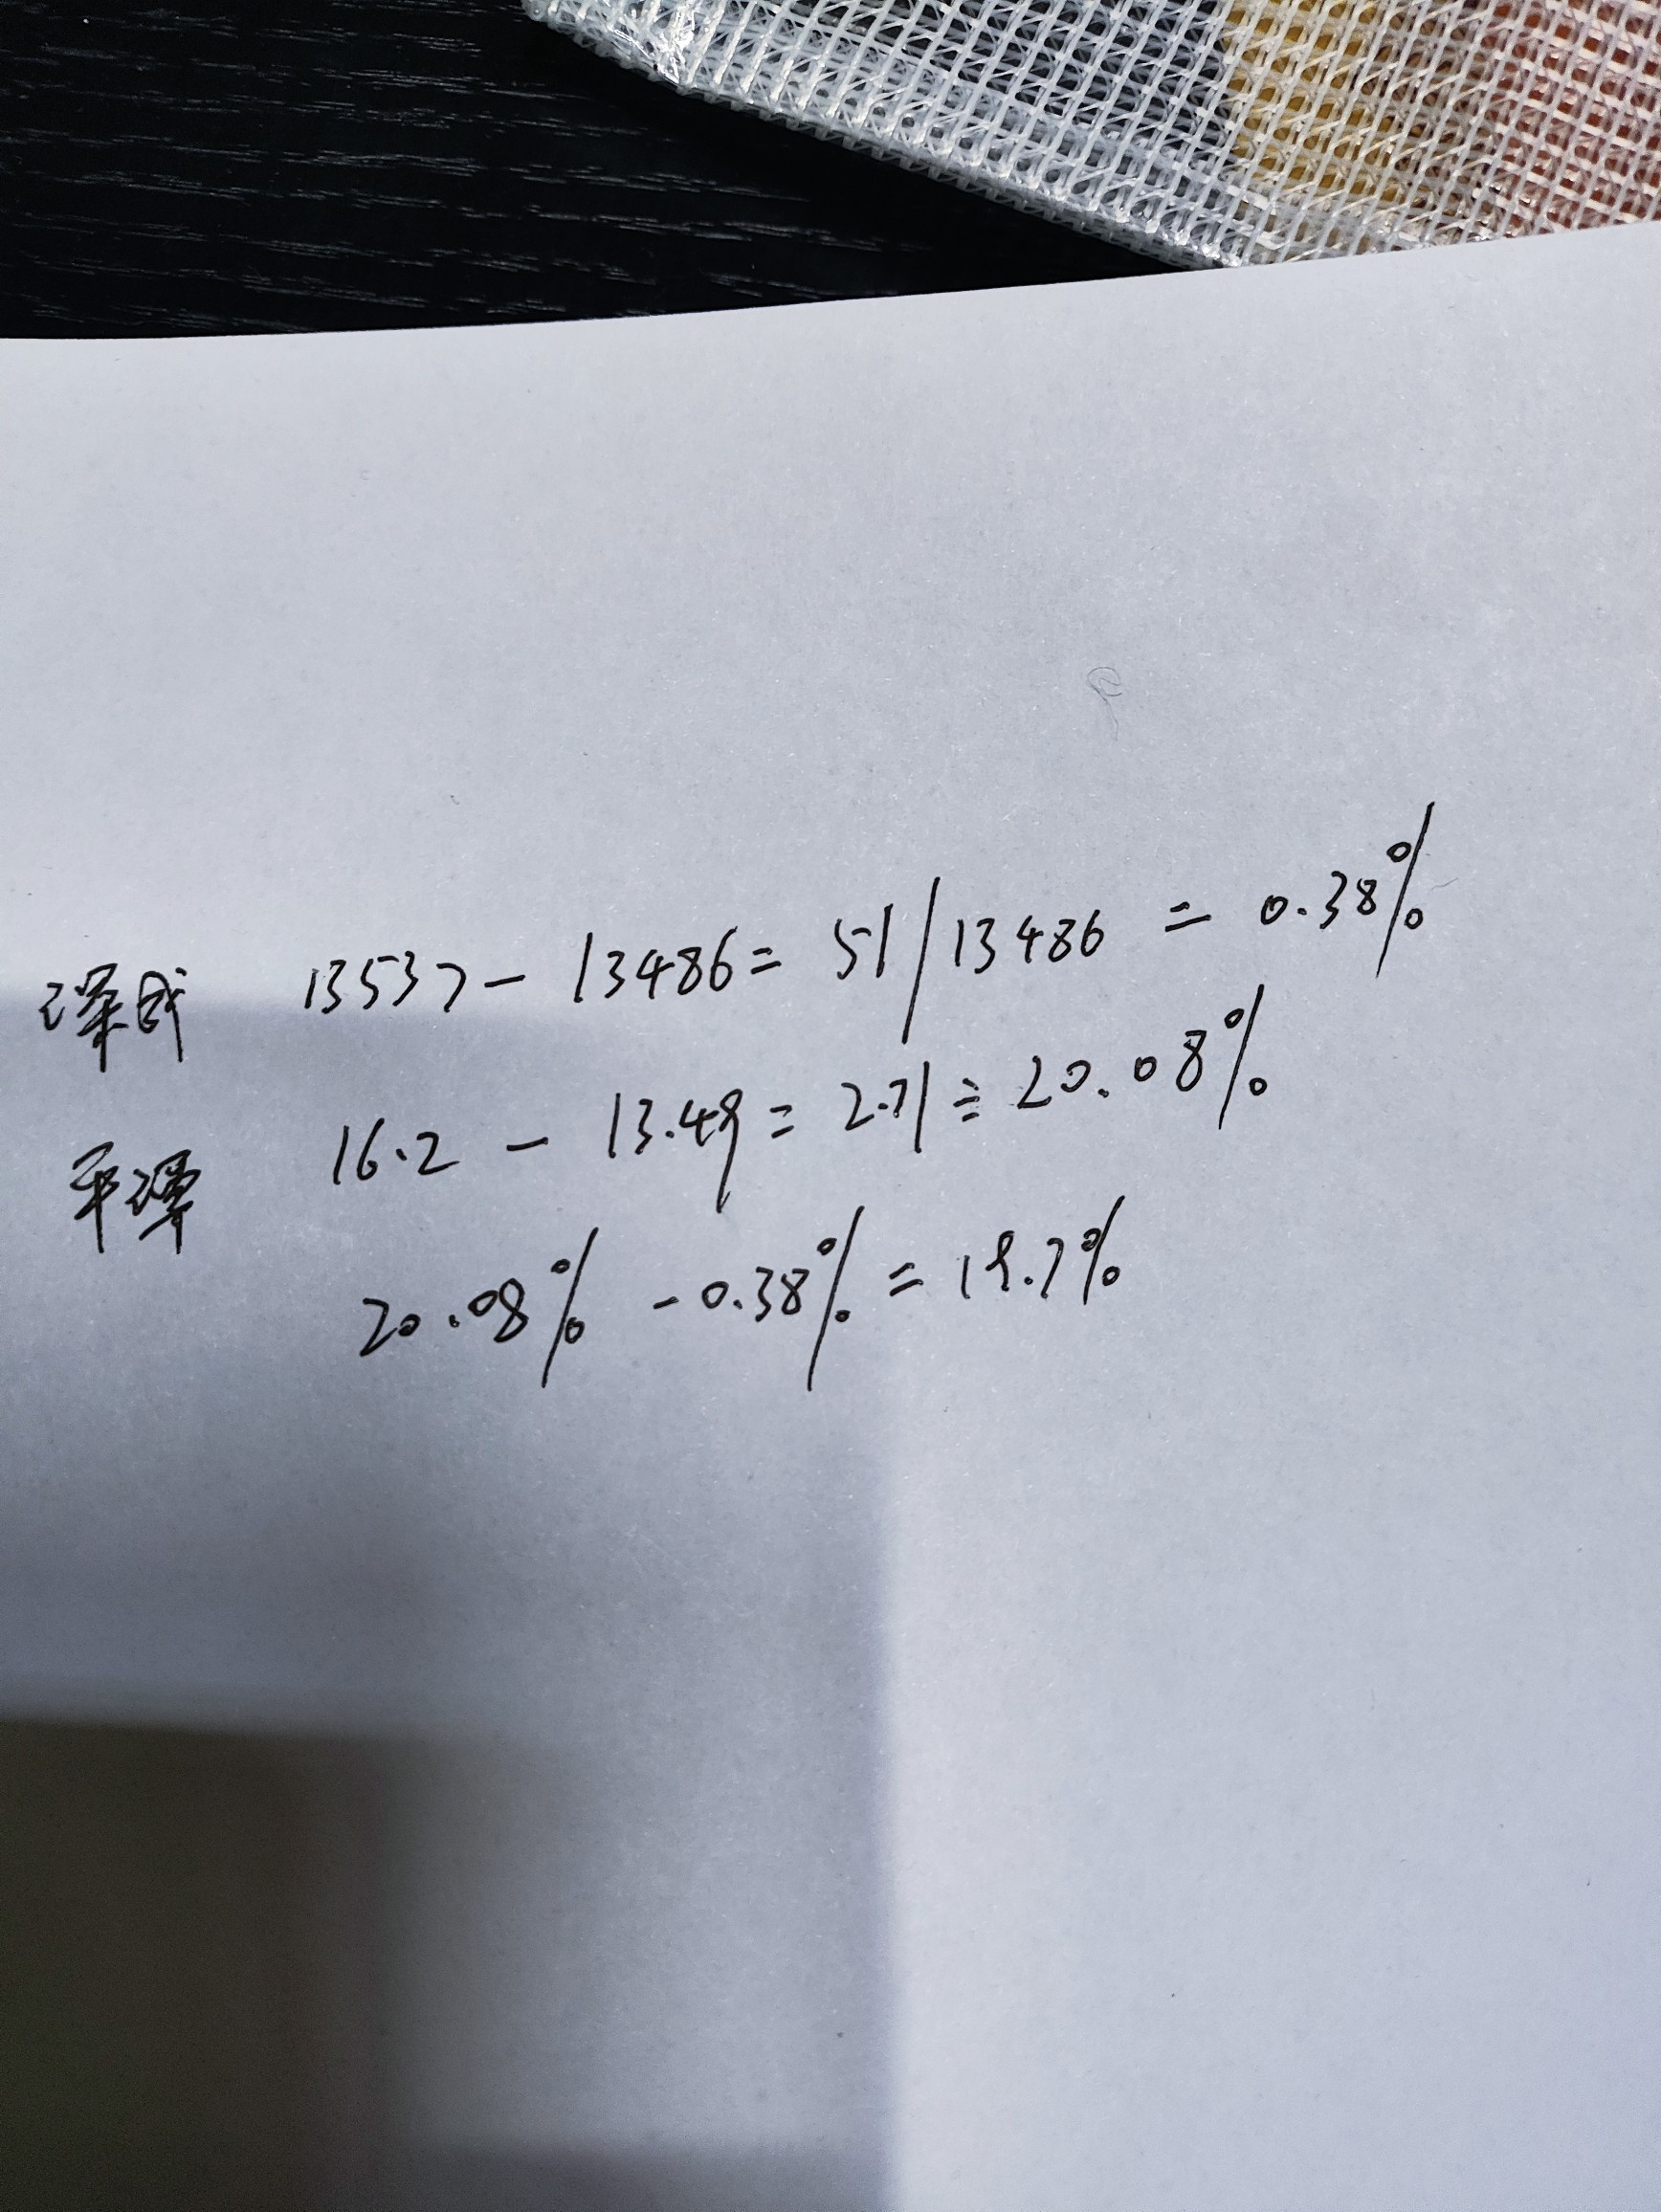 深成 13537 - 13486 = 51/13486 = 0.38%
平潭 16.2 - 13.49 = 2.71 ≓ 20.08%
20.08% - 0.38% = 19.7%